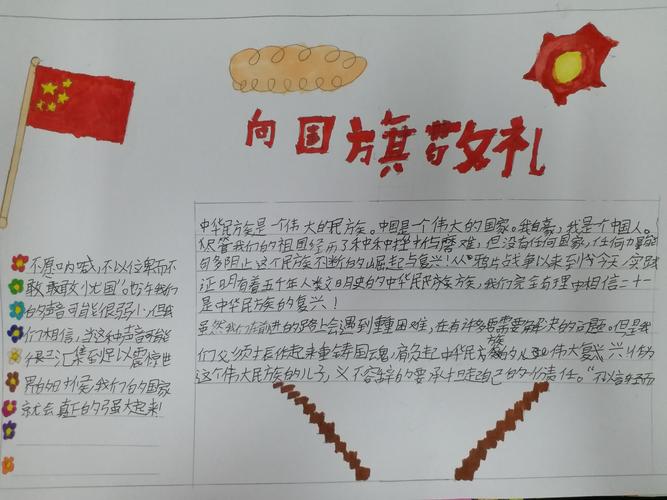 向国旗敬礼
不愿呐喊,不以位卑而不
敢
也许我们
的声音可能很弱小,但我
们相信,当这种声音可能
很 汇集到足以震惊世
界的时候,我们的国家
就会真正的强大起来!
中华民族是一个伟大的民族。中国是一个伟大的国家。我自豪,我是个中国人。
尽管我们的祖国经历了种种挫折与磨难,但没有任何国家,任何力量能
够阻止这个民族不断的崛起与复兴!从"鸦片战争以来到今天,实践
证明有着五千年人类文明史的中华民族,我们完全有理由相信二十一
是中华民族的复兴!
虽然我们在前进的路上会遇到重重困难,在有许多需要解决的问题。但是我
们必须 起来重铸国魂,肩负起中华民族的 伟大复兴!作为
这个伟大民族的儿子,义不容辞的要承担起自己的一份责任。"